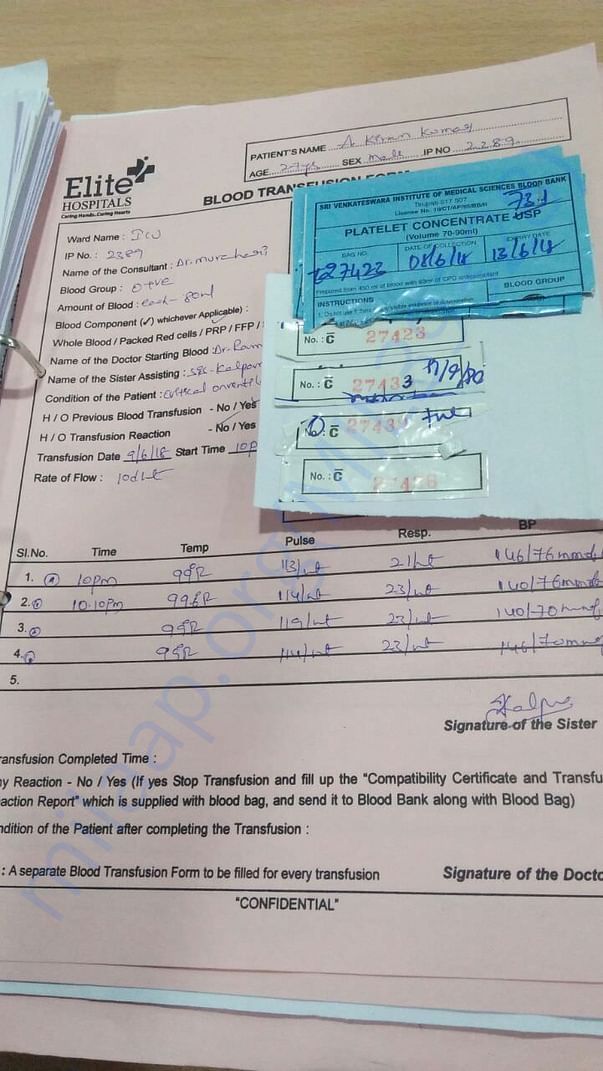 PATIENT'S NAME A Kiran Kumar
AGE 27yrs SEX Male IP NO 2389
Elite
HOSPITALS
Caring Hands..Caring Hearts
BLOOD TRANSFUSION FORM
Ward Name : ICU
IP No. : 2389
Name of the Consultant : Dr.
Blood Group : O+ve
Amount of Blood : each - 80ml
Blood Component (✓) whichever Applicable) :
Whole Blood / Packed Red cells / PRP / FFP /
Name of the Doctor Starting Blood : Dr.
Name of the Sister Assisting :
Condition of the Patient : Critical on
H / O Previous Blood Transfusion - No / Yes
H / O Transfusion Reaction - No / Yes
Transfusion Date 9/6/18 Start Time 10p
Rate of Flow :
SRI VENKATESWARA INSTITUTE OF MEDICAL SCIENCES BLOOD BANK
Tirupati 517 507
PLATELET CONCENTRATE USP
(Volume 70-90ml)
BAG NO DATE OF COLLECTION EXPIRY DATE
27423 08/6/18 13/6/18
INSTRUCTIONS BLOOD GROUP
No. : C 27423
No. : C 27433
No. : C
No. : C
Sl.No. Time Temp Pulse Resp. BP
1. 10pm 99°F 113/mt 21/mt 146/76mmHg
2. 10.10pm 114/mt 23/mt 140/76mmHg
3. 99°F 119/mt 23/mt 140/70mmHg
4. 114/mt 23/mt 146/70mmHg
5.
Kalpa
Signature of the Sister
ransfusion Completed Time :
ny Reaction - No / Yes (If yes Stop Transfusion and fill up the "Compatibility Certificate and Transfu
action Report" which is supplied with blood bag, and send it to Blood Bank along with Blood Bag)
ndition of the Patient after completing the Transfusion :
: A separate Blood Transfusion Form to be filled for every transfusion
Signature of the Docto
"CONFIDENTIAL"
milaap.org